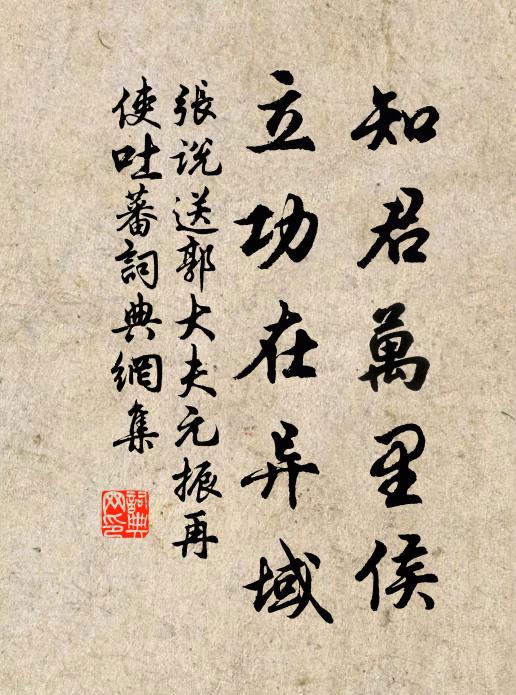 知君萬里侯
立功在异域
張説送郭大夫元振再
使吐蕃詞典網集
詞典
网印